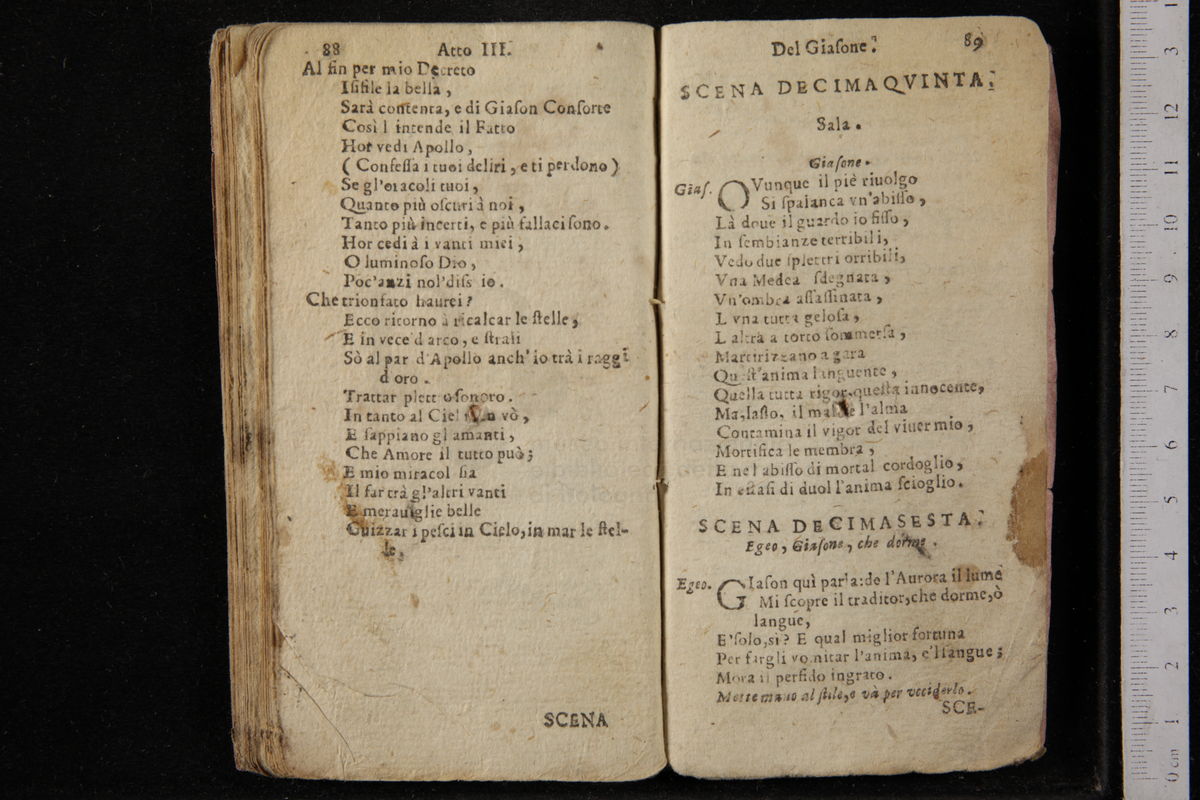 88 Atto III.
Al fin per mio Decreto
Iſifile la bella,
Sarà contenta, e di Giaſon Conſorte
Così l intende il Fatto
Hor vedi Apollo,
( Confeſſa i tuoi deliri, e ti perdono )
Se gl'oracoli tuoi,
Quanto più oſcuri à noi,
Tanto più incerti, e più fallaci ſono.
Hor cedi à i vanti miei,
O luminoſo Dio,
Poc'anzi nol'diſs io.
Che trionfato haurei?
Ecco ritorno à ricalcar le ſtelle,
E in vece d arco, e ſtrali
Sò al par d'Apollo anch'io trà i raggi
d oro.
Trattar plett o ſonoro.
In tanto al Ciel vò,
E ſappiano gl amanti,
Che Amore il tutto può;
E mio miracol ſia
Il far trà gl'altri vanti
E merauiglie belle
Guizzar i peſci in Cielo, in mar le ſtel-
le,
SCENA
Del Giaſone. 89
SCENA DECIMAQVINTA.
Sala.
Giaſone.
Giaſ. OVunque il piè riuolgo
Si ſpalanca vn'abiſſo,
Là doue il guardo io fiſſo,
In ſembianze terribili,
Vedo due ſplettri orribili,
Vna Medea ſdegnata,
Vn'ombra aſſaſſinata,
L vna tutta geloſa,
L altra a torto ſommerſa,
Martirizzano a gara
Queſt'anima languente,
Quella tutta rigor, queſta innocente,
Ma, laſſo, il mal l'alma
Contamina il vigor del viuer mio,
Mortifica le membra,
E nel abiſſo di mortal cordoglio,
In eſtaſi di duol l'anima ſcioglio.
SCENA DECIMASESTA.
Egeo, Giaſone, che dorme.
Egeo. GIaſon quì parla: de l'Aurora il lume
Mi ſcopre il traditor, che dorme, ò
langue,
E'ſolo, sì? E qual miglior fortuna
Per fargli vomitar l'anima, e'l ſangue;
Mora il perfido ingrato.
Mette mano al ſtile, e và per vcciderlo.
SCE-